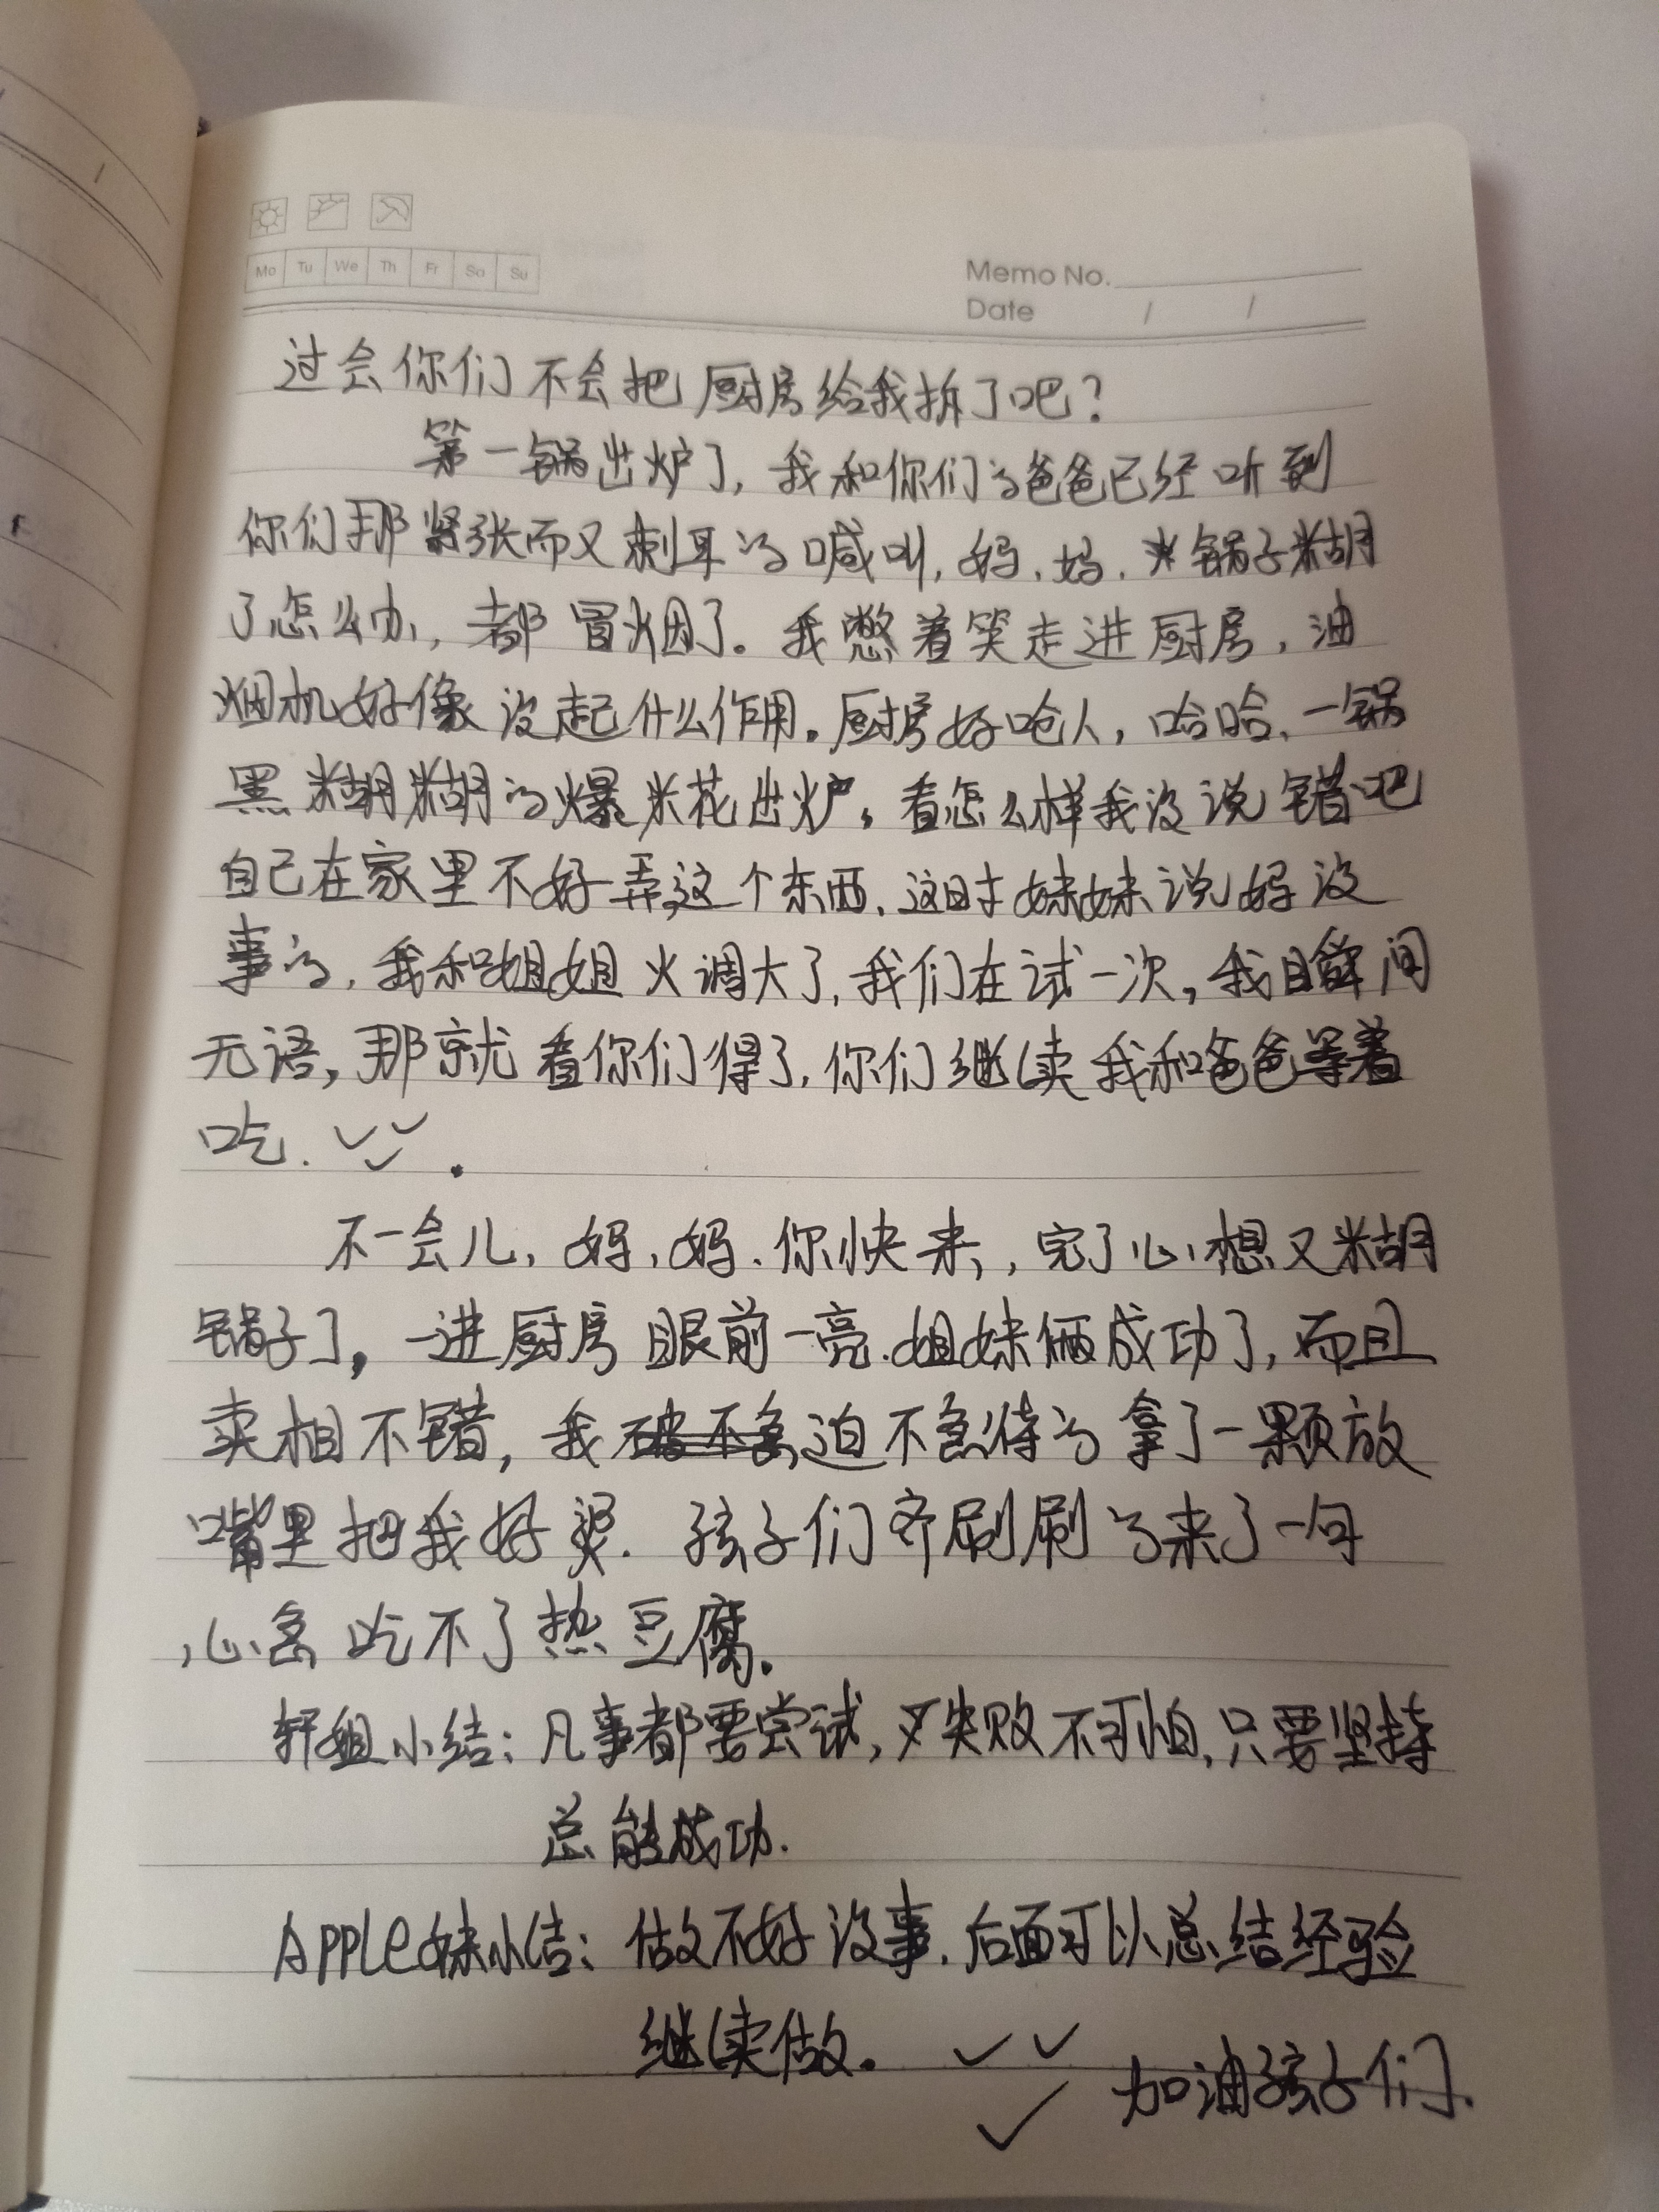 Mo Tu We Th Fr Sa Su
Memo No.
Date / /
过会你们不会把厨房给我拆了吧？
第一锅出炉了，我和你们的爸爸已经听到
你们那紧张而又刺耳的喊叫，妈、妈、锅子糊
了怎么办，都冒烟了。我憋着笑走进厨房，油
烟机好像没起什么作用。厨房好呛人，哈哈、一锅
黑糊糊的爆米花出炉。看怎么样我没说错吧
自己在家里不好弄这个东西、这时妹妹说妈没
事的、我和姐姐火调大了，我们在试一次，我瞬间
无语，那就看你们得了，你们继续我和爸爸等着
吃.
不一会儿，妈，妈、你快来，完了心想又糊
锅子了，一进厨房眼前一亮.姐妹俩成功了，而且
卖相不错，我迫不急待的拿了一颗放
嘴里把我好烫. 孩子们齐刷刷的来了一句
心急吃不了热豆腐。
轩姐小结：凡事都要尝试，失败不可怕，只要坚持
总能成功.
Apple妹小结：做不好没事.后面可以总结经验
继续做。
加油孩子们.